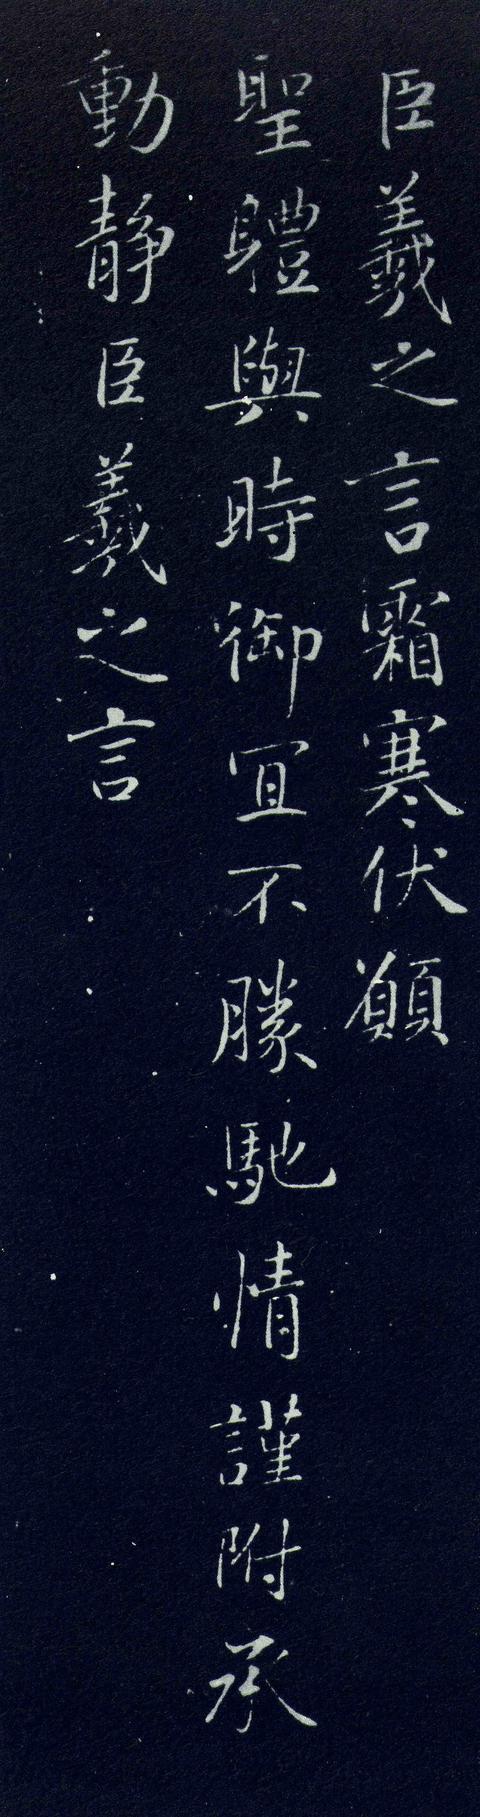 臣羲之言霜寒伏願
聖軆與時御宜不勝馳情謹附承
動静臣羲之言